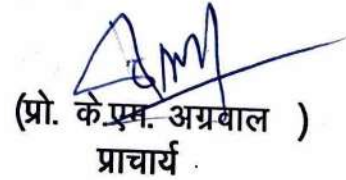 (प्रो. के.एम. अग्रवाल )
प्राचार्य